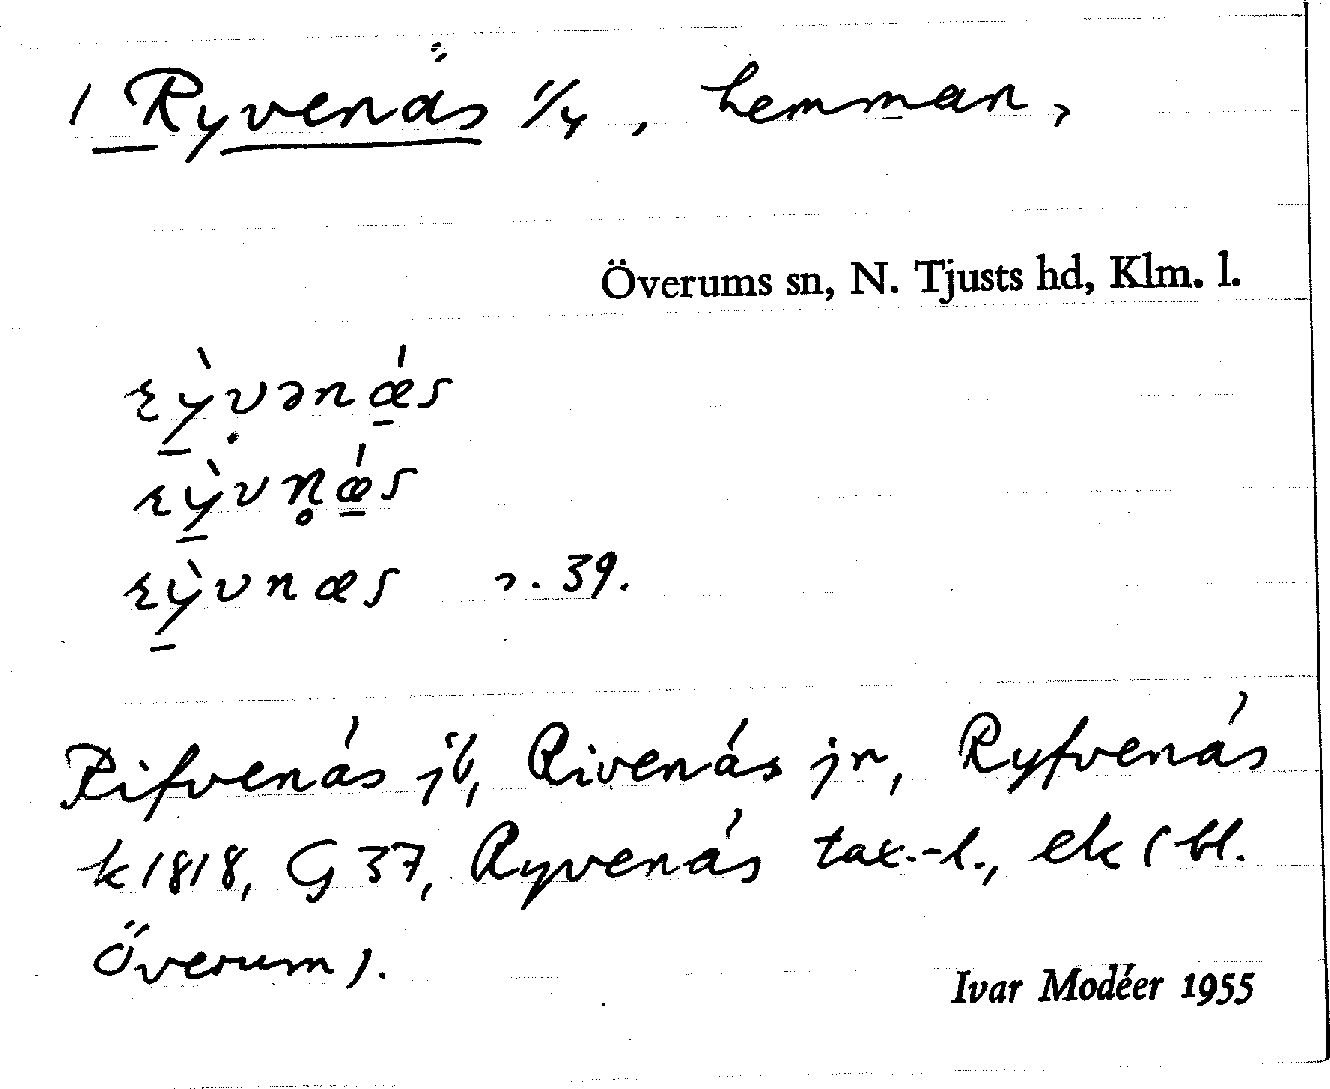 1 Ryvenäs 1/4, hemman,
Överums sn, N. Tjusts hd, Klm. l.
rỳvənǽs
rỳvn̥ǽs
rỳvnæs r. 39.
Rifvenäs jb, Rivenäs jr, Ryfvenäs
k 1818, G 37, Ryvenäs tax.-l., ek (bl.
Överum).
Ivar Modéer 1955